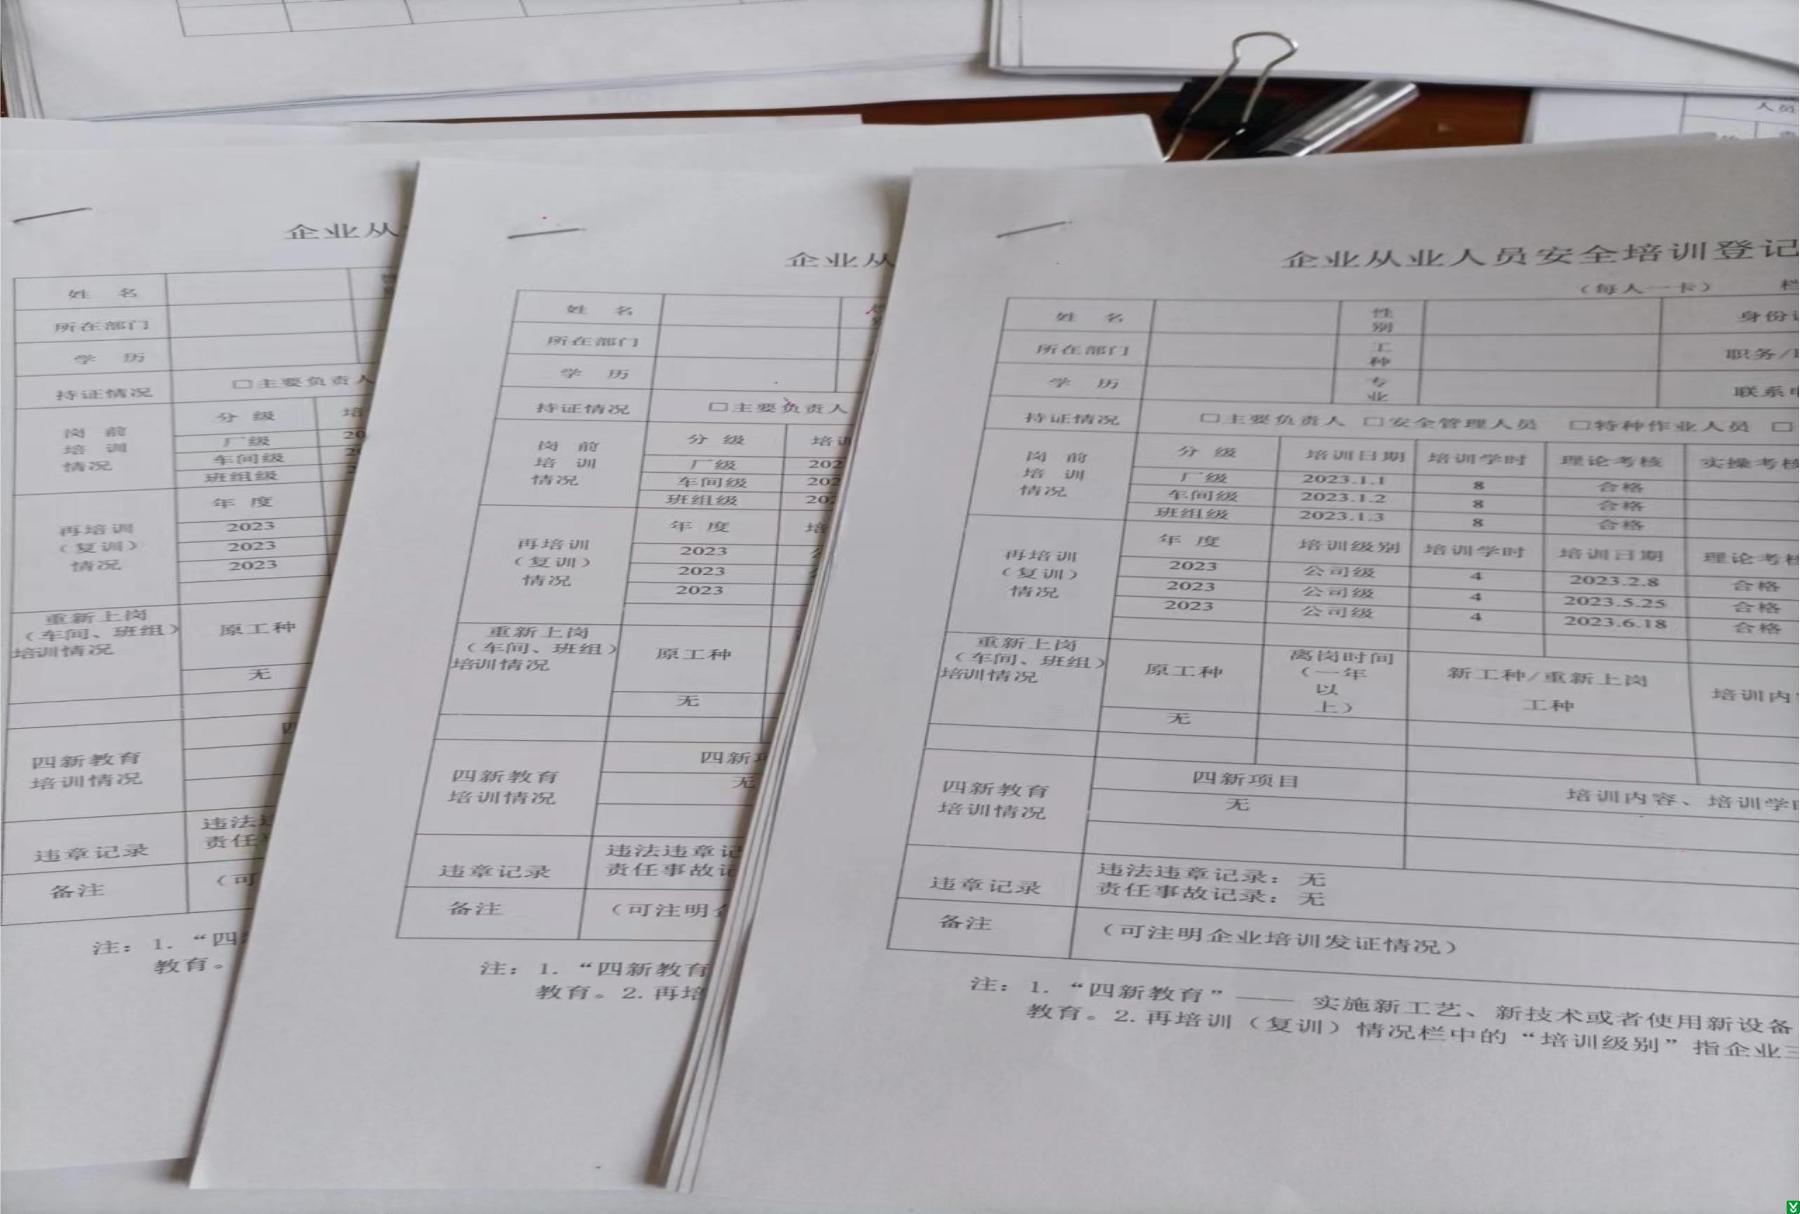 人员
企业从
姓 名
所在部门
学 历
持证情况 □主要负责人
岗 前
培 训
情况
分 级 培
厂级 20
车间级 2
班组级 2
再培训
（复训）
情况
年 度
2023
2023
2023
重新上岗
（车间、班组）
培训情况
原工种
无
四新教育
培训情况
四
违章记录
违法
责任
备注 （可
注：1. “四
教育。
企业从
姓 名
所在部门
学 历
持证情况 □主要负责人
岗 前
培 训
情况
分 级 培训
厂级 202
车间级 202
班组级 20
再培训
（复训）
情况
年 度 培
2023
2023
2023
重新上岗
（车间、班组）
培训情况
原工种
无
四新教育
培训情况
四新项
无
违章记录
违法违章记
责任事故记
备注 （可注明企
注：1. “四新教育
教育。2.再培
企业从业人员安全培训登记
（每人一卡）
姓 名 性别 身份证
所在部门 工种 职务/
学 历 专业 联系电
持证情况 □主要负责人 □安全管理人员 □特种作业人员 □
岗 前
培 训
情况
分 级 培训日期 培训学时 理论考核 实操考核
厂级 2023.1.1 8 合格
车间级 2023.1.2 8 合格
班组级 2023.1.3 8 合格
再培训
（复训）
情况
年 度 培训级别 培训学时 培训日期 理论考核
2023 公司级 4 2023.2.8 合格
2023 公司级 4 2023.5.25 合格
2023 公司级 4 2023.6.18 合格
重新上岗
（车间、班组）
培训情况
原工种
离岗时间
（一年
以
上）
新工种/重新上岗
工种
培训内
无
四新教育
培训情况
四新项目 培训内容、培训学时
无
违章记录
违法违章记录：无
责任事故记录：无
备注 （可注明企业培训发证情况）
注：1. “四新教育”—— 实施新工艺、新技术或者使用新设备
教育。2.再培训（复训）情况栏中的“培训级别”指企业三